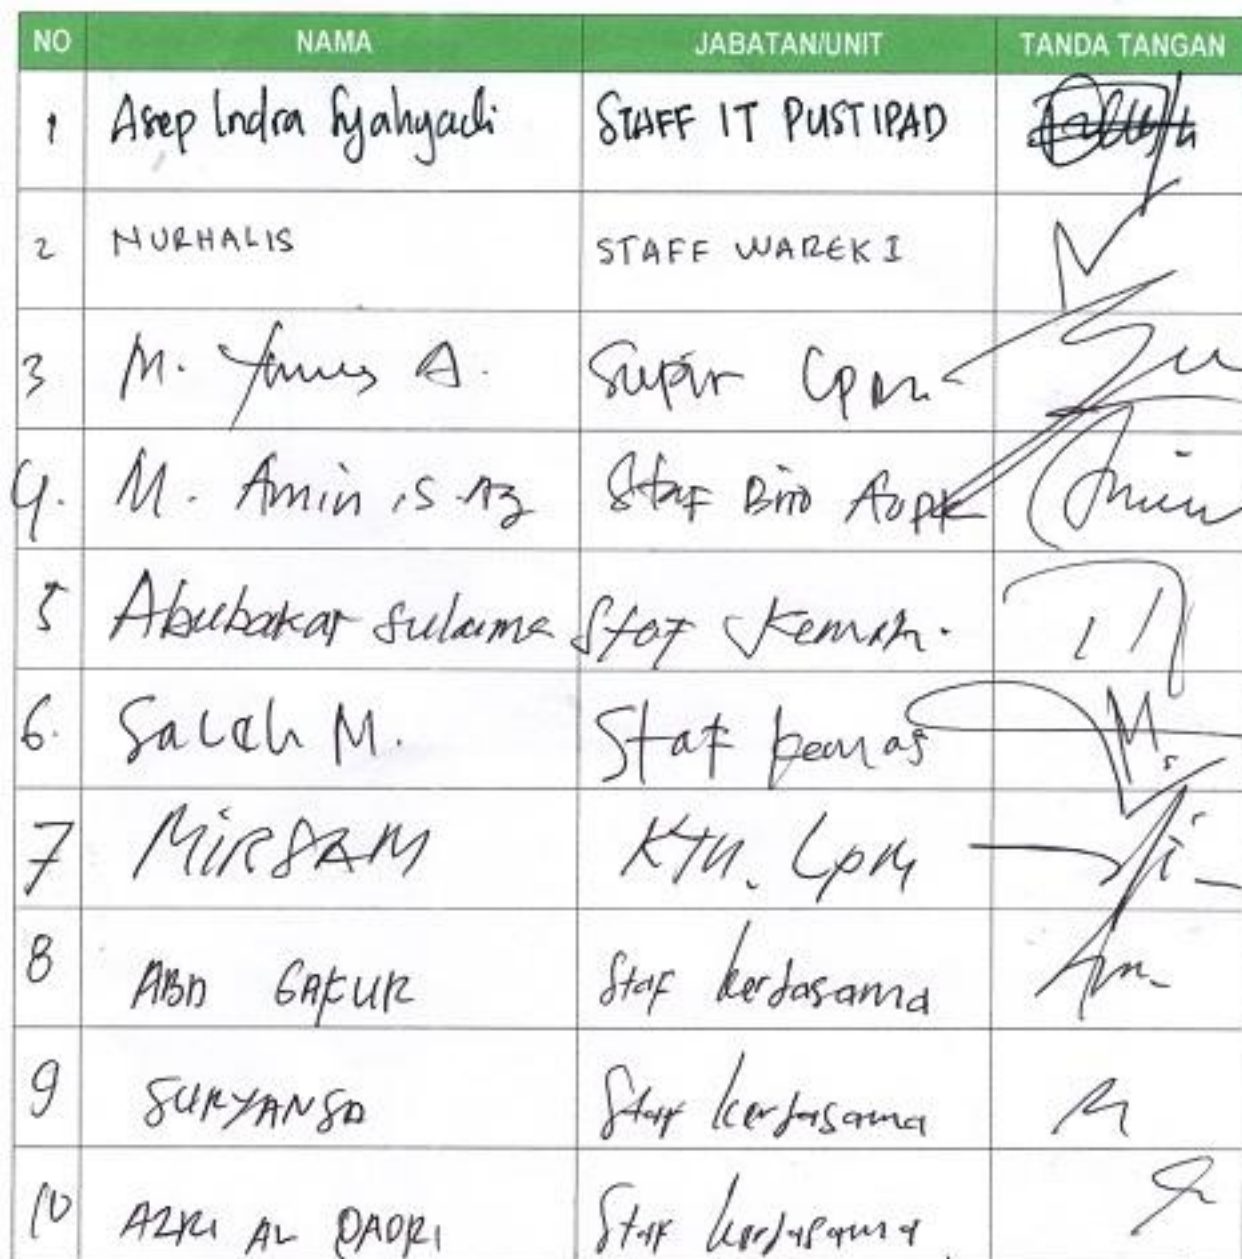 NO NAMA JABATAN/UNIT TANDA TANGAN
1 Asep Indra Syahyadi STAFF IT PUSTIPAD
2 NURHALIS STAFF WAREK I
3 M. Yunus A. Supir LPM
4. M. Amin .S Az Staf Biro AUPK
5 Abubakar Sulaima Staf
6. Saleh M. Staf
7 MIRSAM KTU. LPM
8 ABD GAFUR Staf kerjasama
9 SURYANSA Staf kerjasama
10 AZRI AL QADRI Staf kerjasama